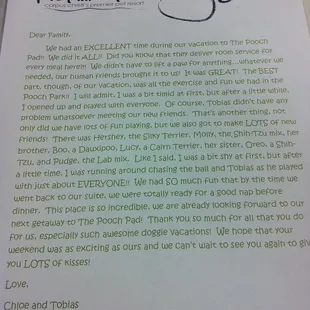 corpus christi's premier pet resort
Dear Family,
We had an EXCELLENT time during our vacation to The Pooch
Pad!! We did it ALL!! Did you know that they deliver room service for
every meal here!!! We didn't have to lift a paw for anything...whatever we
needed, our human friends brought it to us! It was GREAT! The BEST
part, though, of our vacation, was all the exercise and fun we had in the
Pooch Park!! I will admit, I was a bit timid at first, but after a little while,
I opened up and played with everyone. Of course, Tobias didn't have any
problem whatsoever meeting our new friends. That's another thing, not
only did we have lots of fun playing, but we also got to make LOTS of new
friends! There was Hershey, the Silky Terrier, Molly, the Shih-Tzu mix, her
brother, Boo, a Dauxipoo, Lucy, a Cairn Terrier, her sister, Oreo, a Shih-
Tzu, and Pudge, the Lab mix. Like I said, I was a bit shy at first, but after
a little time, I was running around chasing the ball and Tobias as he played
with just about EVERYONE!! We had SO much fun that by the time we
went back to our suite, we were totally ready for a good nap before
dinner. This place is so incredible, we are already looking forward to our
next getaway to The Pooch Pad! Thank you so much for all that you do
for us, especially such awesome doggie vacations! We hope that your
weekend was as exciting as ours and we can't wait to see you again to give
you LOTS of kisses!
Love,
Chloe and Tobias